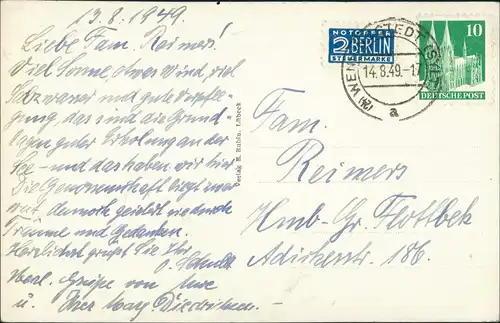 13.8.1949.
Liebe Fam. Reimers!
Viel Sonne, etwas Wind, viel
Salzwasser und gute Verpfle-
gung, das sind die Grund-
lagen guter Erholung an der
See – und das haben wir hier
Die Genossenschaft liegt zwar
weit, dennoch geistert sie durch
Träume und Gedanken.
Herzlichst grüßt Sie Ihr
O. Schult
Herzl. Grüße von
u. Ihrer Marg. Diedrichsen.
Verlag R. Rohde, Lübeck
NOTOPFER
2 BERLIN
STEUERMARKE
14.8.49.-17
a
10
DEUTSCHE POST
Fam.
Reimers
Hmb-Gr. Flottbek
Adickesstr. 186.